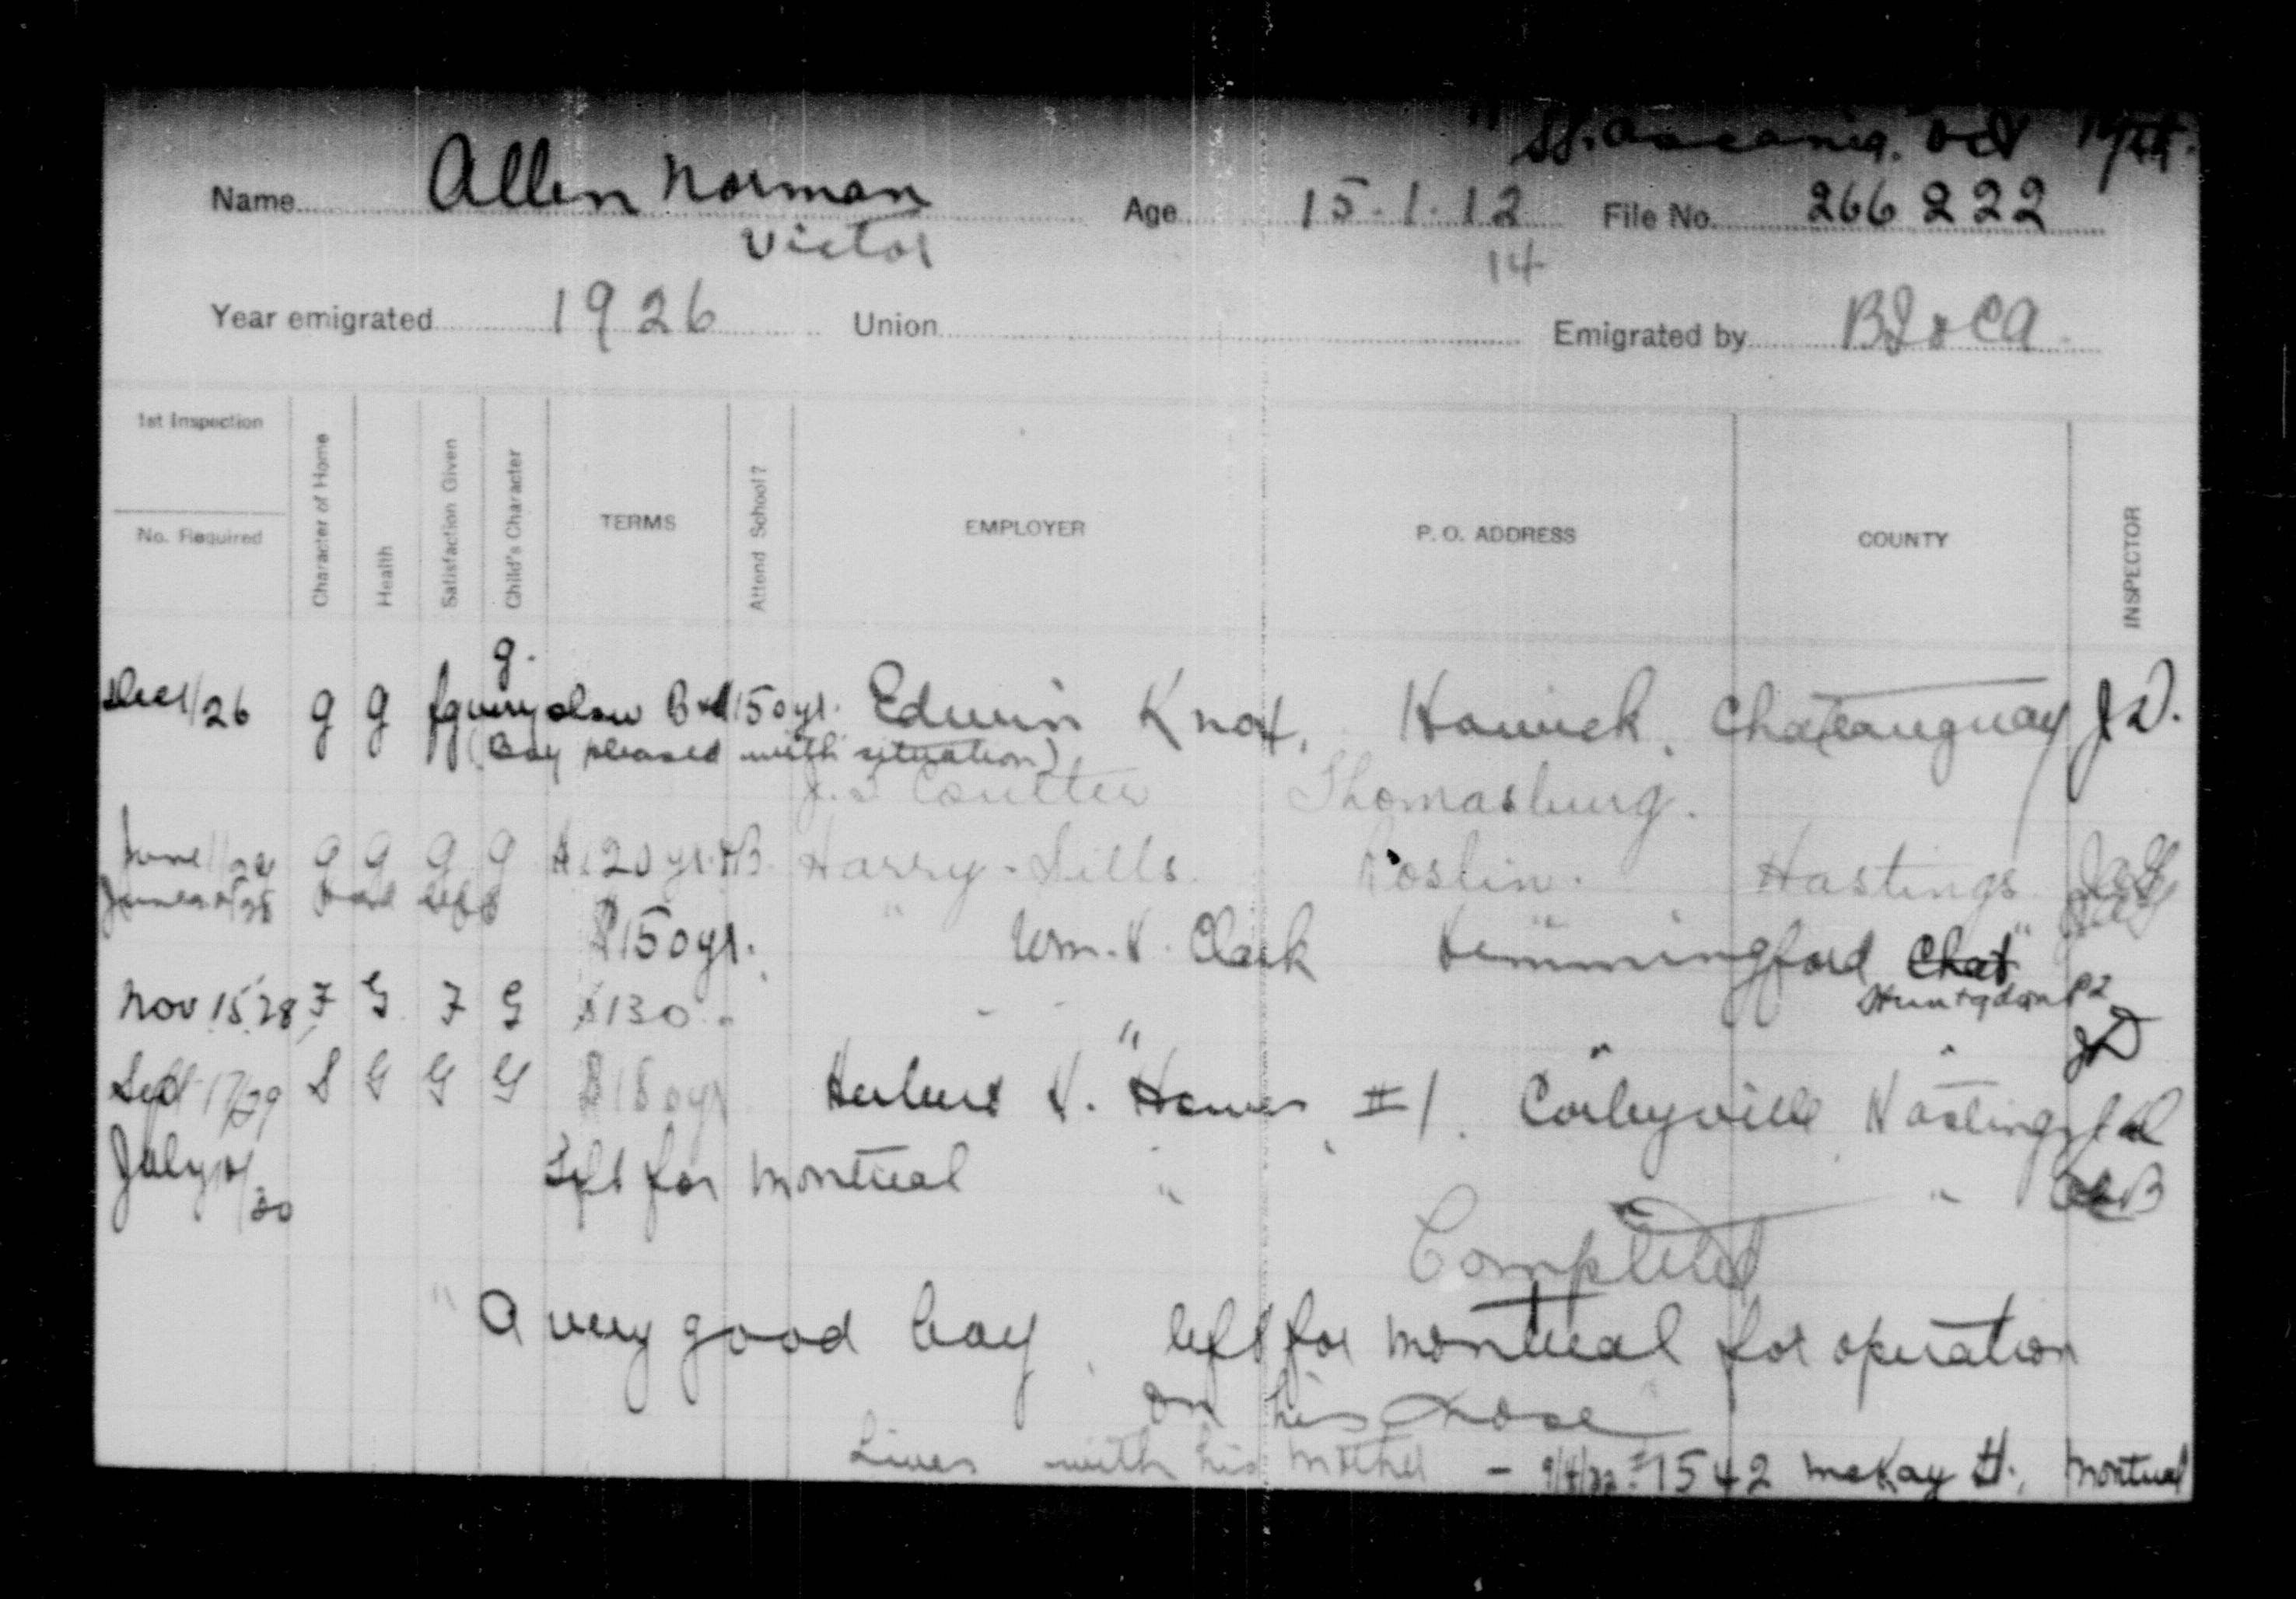 SS. Ascania. Oct
Name Allen Norman Age 15.1.12 File No. 266222
Victor 14
Year emigrated 1926 Union Emigrated by BI & CA.
1st Inspection
No. Required
Character of Home
Health
Satisfaction Given
Child's Character
TERMS
Attend School?
EMPLOYER
P. O. ADDRESS
COUNTY
INSPECTOR
g.
Dec 1/26 g g fg very slow B & $150 yr. Edwin Knox, Howick, Chateauguay JD.
(Boy pleased with situation)
Coulter Thomasburg.
June g g g g 20 yr. & B. Harry Sills. Roslin. Hastings
had left " "
$150 yr. Wm. H. Clark Hemmingford Chat "
Huntgdon
Nov 15/28 F G F G $130 - - - " JD
Sept 17/29 S G G G $180 yr Herbert H. #1. Corbyville Hastings
July /30 Left for Montreal " "
Completed
" A very good boy, left for Montreal for operation
on his nose
Lives with his Mother - 1542 McKay St., Montreal